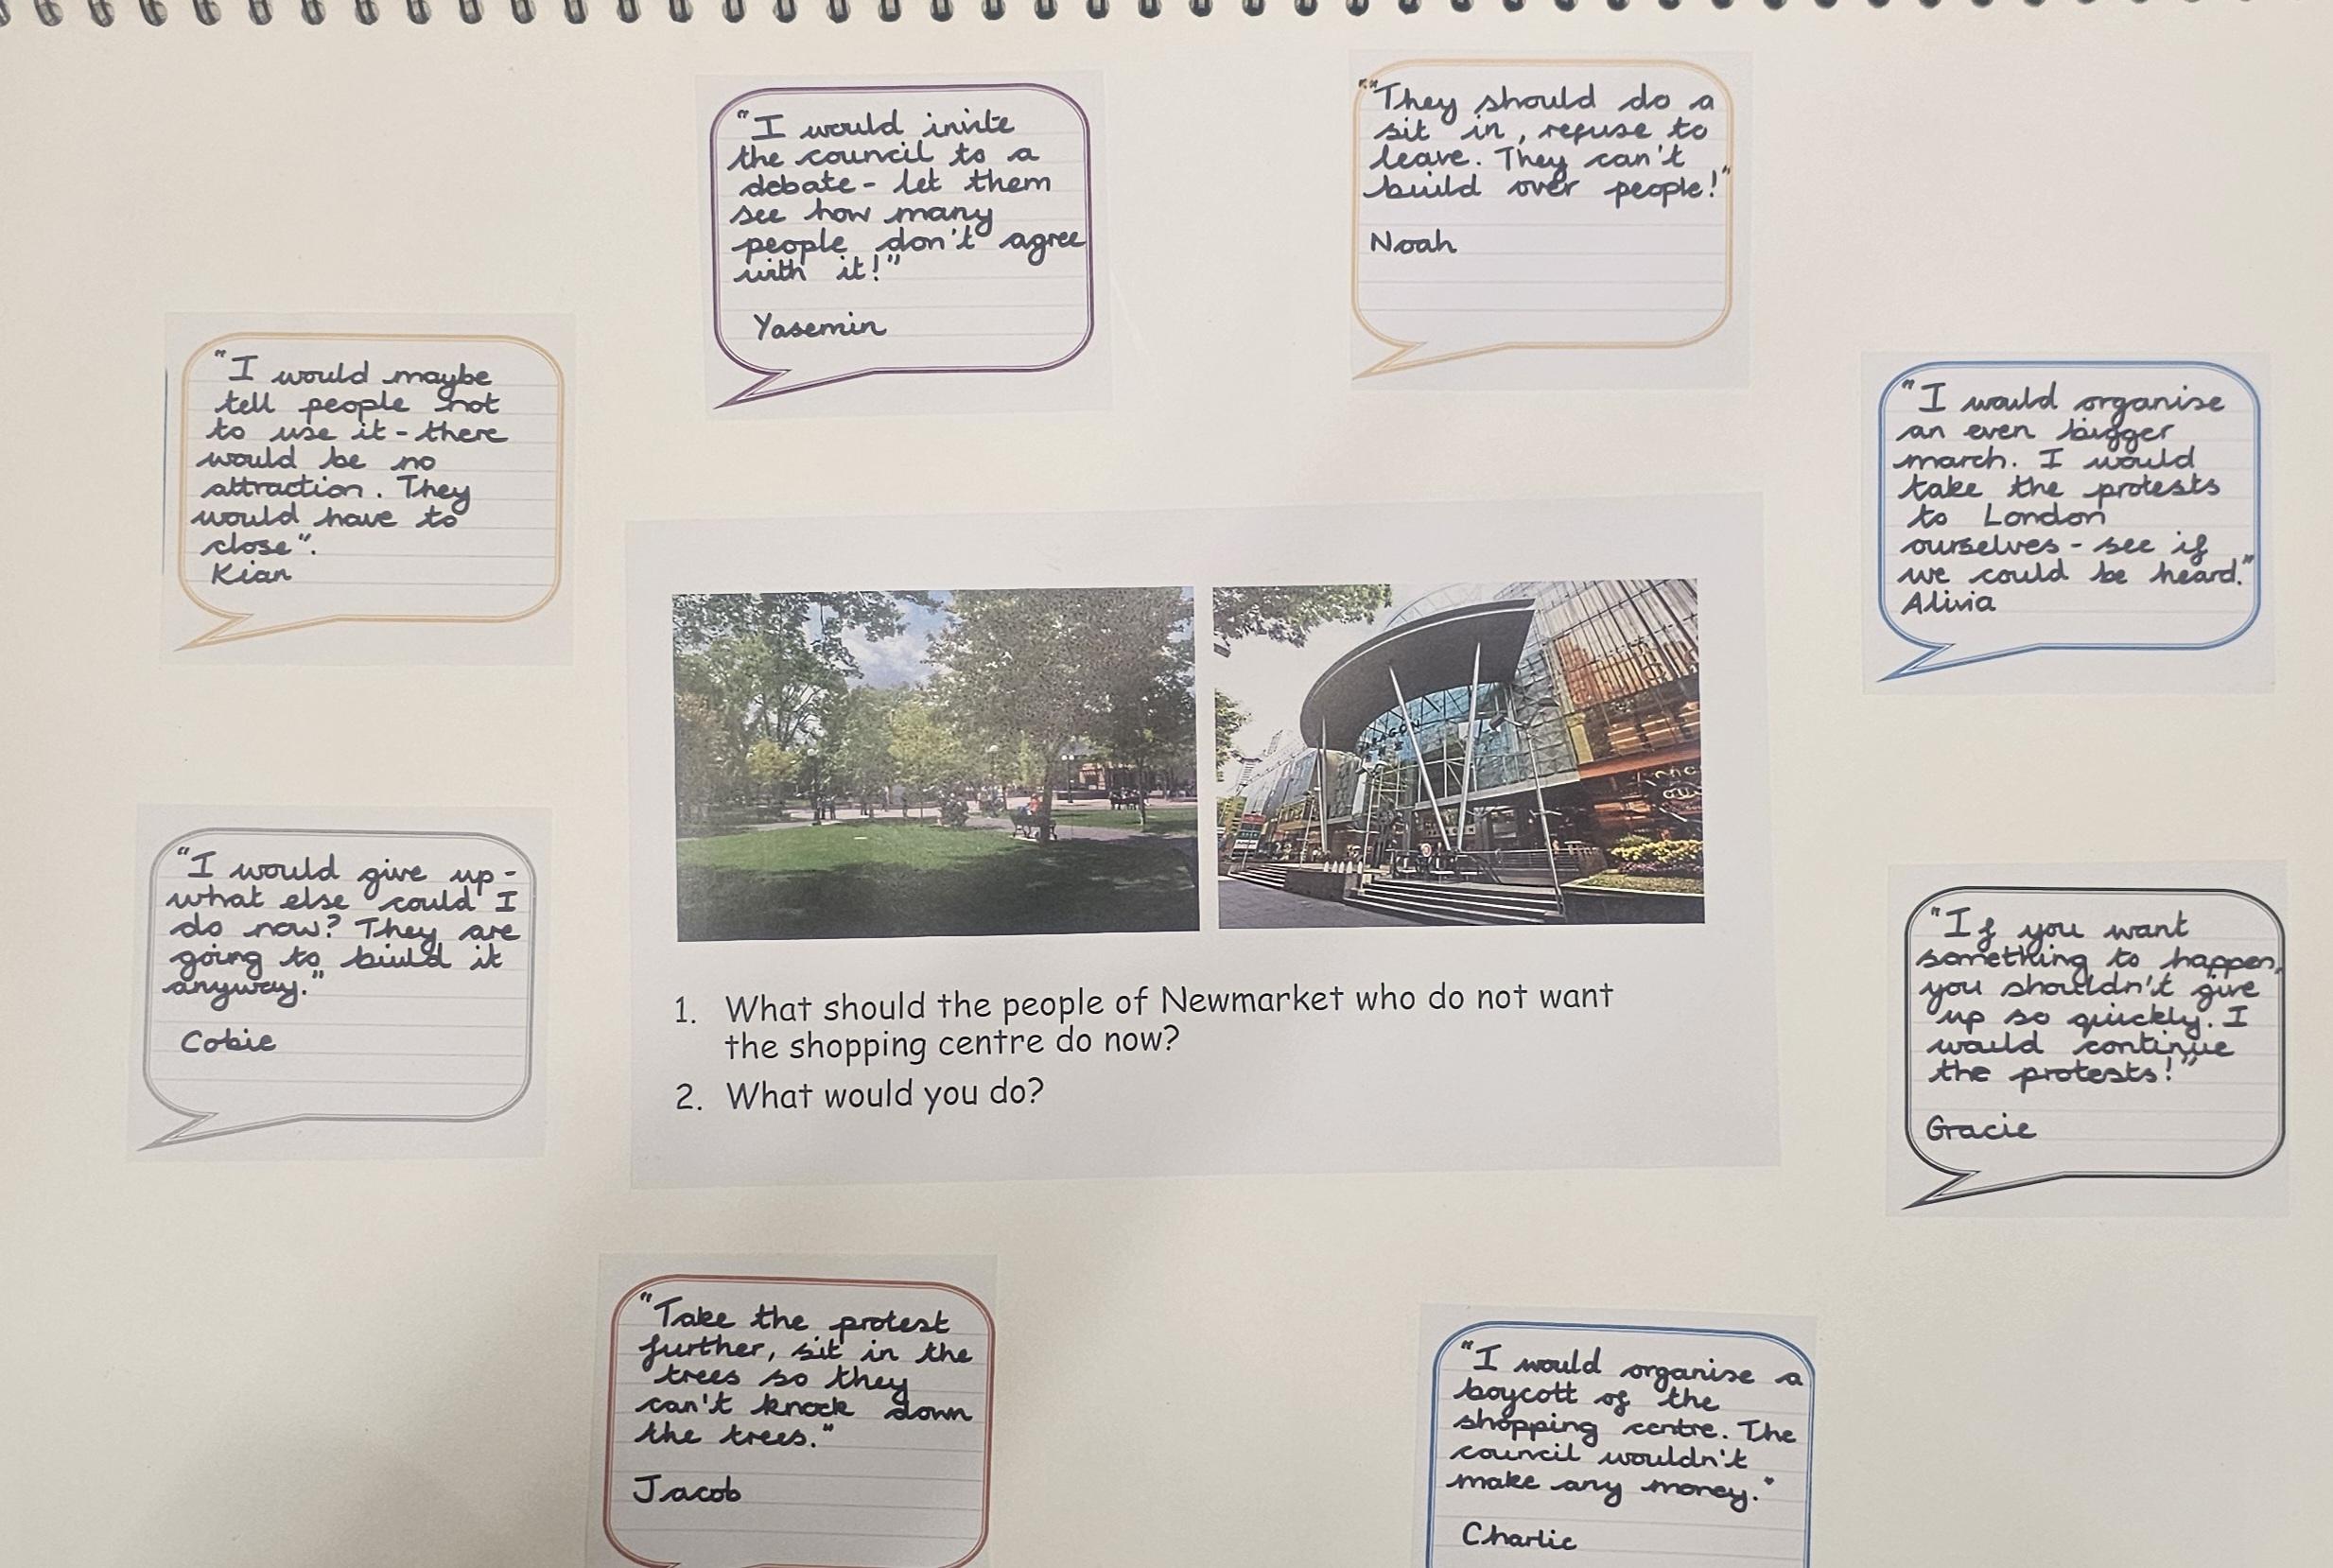 "I would invite
the council to a
debate - let them
see how many
people don't agree
with it!"
Yasemin
""They should do a
sit in, refuse to
leave. They can't
build over people!"
Noah
"I would maybe
tell people not
to use it - there
would be no
attraction. They
would have to
close".
Kian
"I would organise
an even bigger
march. I would
take the protests
to London
ourselves - see if
we could be heard."
Alivia
PARAGON
"I would give up -
what else could I
do now? They are
going to build it
anyway."
Cobie
1. What should the people of Newmarket who do not want
the shopping centre do now?
2. What would you do?
"If you want
something to happen,
you shouldn't give
up so quickly. I
would continue
the protests!"
Gracie
"Take the protest
further, sit in the
trees so they
can't knock down
the trees."
Jacob
"I would organise a
boycott of the
shopping centre. The
council wouldn't
make any money."
Charlie